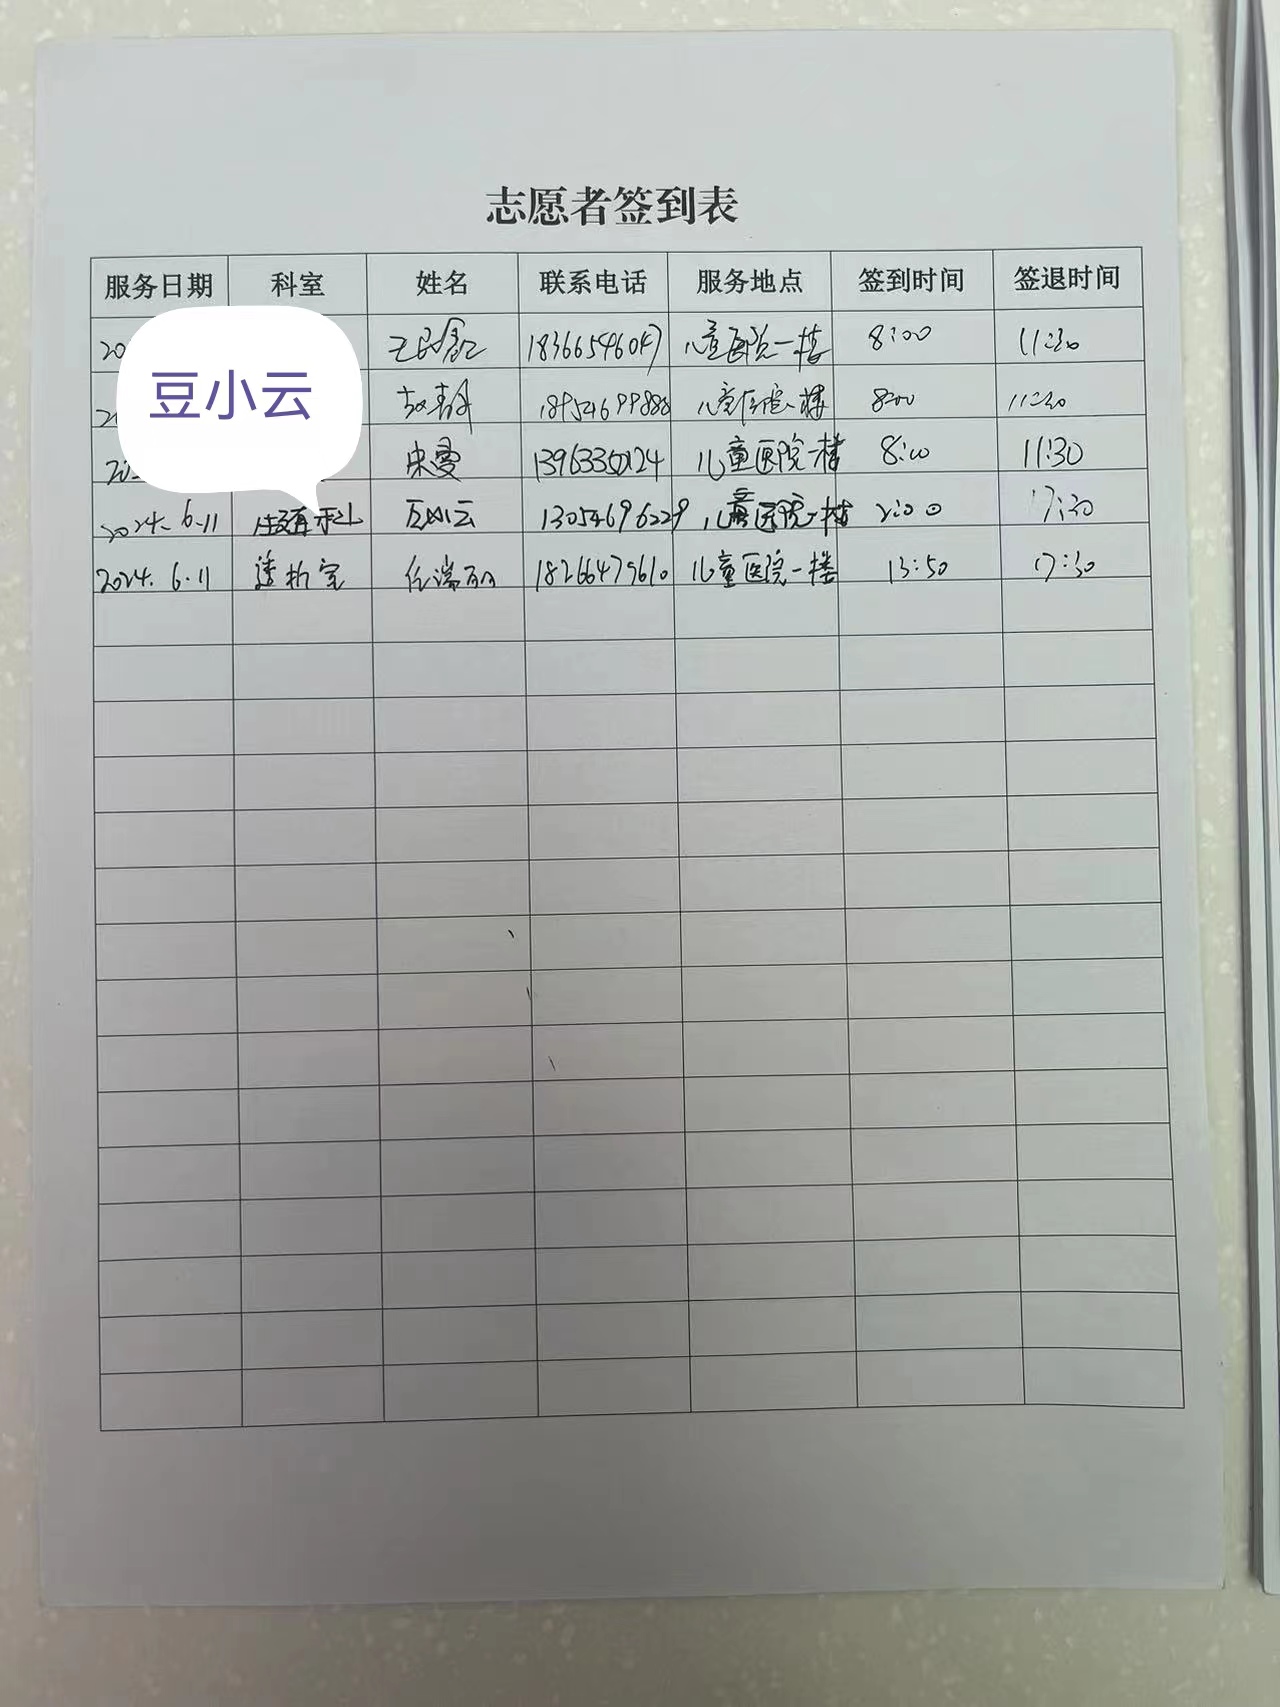 志愿者签到表
服务日期 科室 姓名 联系电话 服务地点 签到时间 签退时间
20 18366546047 儿童医院一楼 8:00 11:30
豆小云
18954699888 儿童医院一楼 8:00 11:30
20 宋雯 13963360124 儿童医院一楼 8:00 11:30
2024.6.11 生殖科 豆小云 13054696229 儿童医院一楼 2:00 17:30
2024.6.11 透析室 任瑞丽 18266479610 儿童医院一楼 13:50 17:30